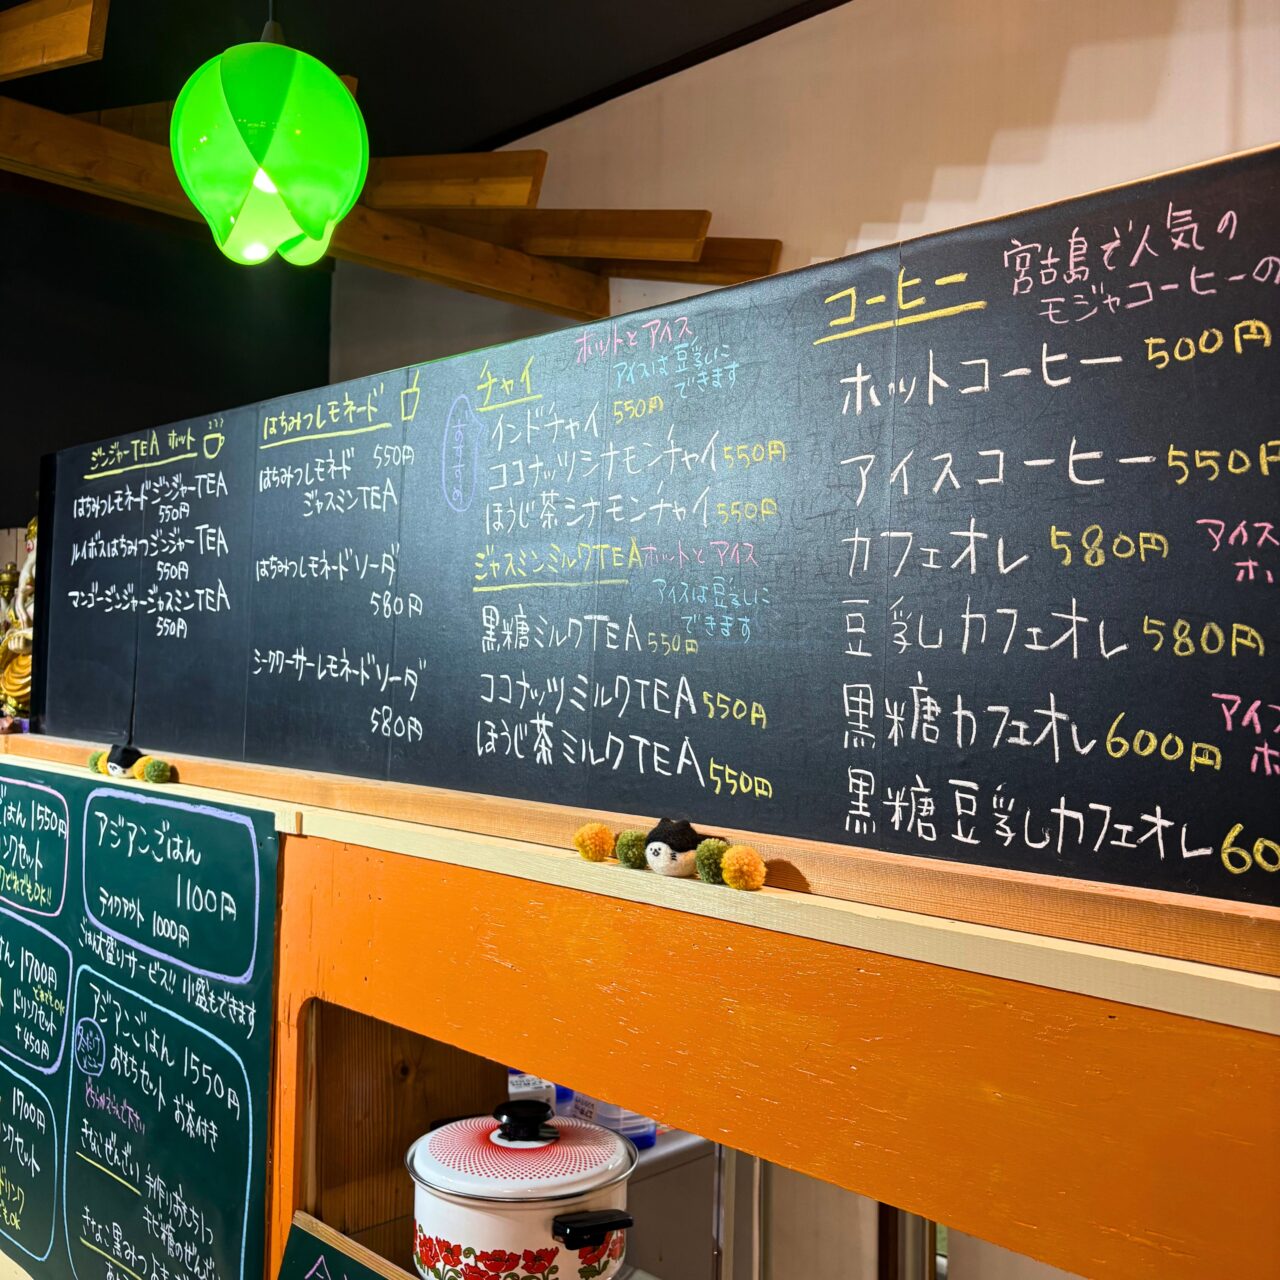 ジンジャーTEA ホット
はちみつレモネードジンジャーTEA
550円
ルイボスはちみつジンジャーTEA
550円
マンゴージンジャージャスミンTEA
550円
はちみつレモネード
はちみつレモネード 550円
ジャスミンTEA
はちみつレモネードソーダ
580円
シークワーサーレモネードソーダ
580円
チャイ
ホットとアイス
アイスは豆乳に
できます
おすすめ
インドチャイ 550円
ココナッツシナモンチャイ 550円
ほうじ茶シナモンチャイ 550円
ジャスミンミルクTEA ホットとアイス
アイスは豆乳に
できます
黒糖ミルクTEA 550円
ココナッツミルクTEA 550円
ほうじ茶ミルクTEA 550円
コーヒー
宮古島で人気の
モジャコーヒーの
ホットコーヒー 500円
アイスコーヒー 550円
カフェオレ 580円
アイス
豆乳カフェオレ 580円
黒糖カフェオレ 600円
黒糖豆乳カフェオレ
ごはん 1550円
ンクセット
1700円
ドリンクセット
+450円
1700円
ンクセット
ドリンク
アジアンごはん
1100円
テイクアウト 1000円
ごはん大盛りサービス!! 小盛もできます
アジアンごはん 1550円
おもちセット お茶付き
きなこぜんざい
手作りおもち1つ
キビ糖のぜんざい
きなこ黒みつ